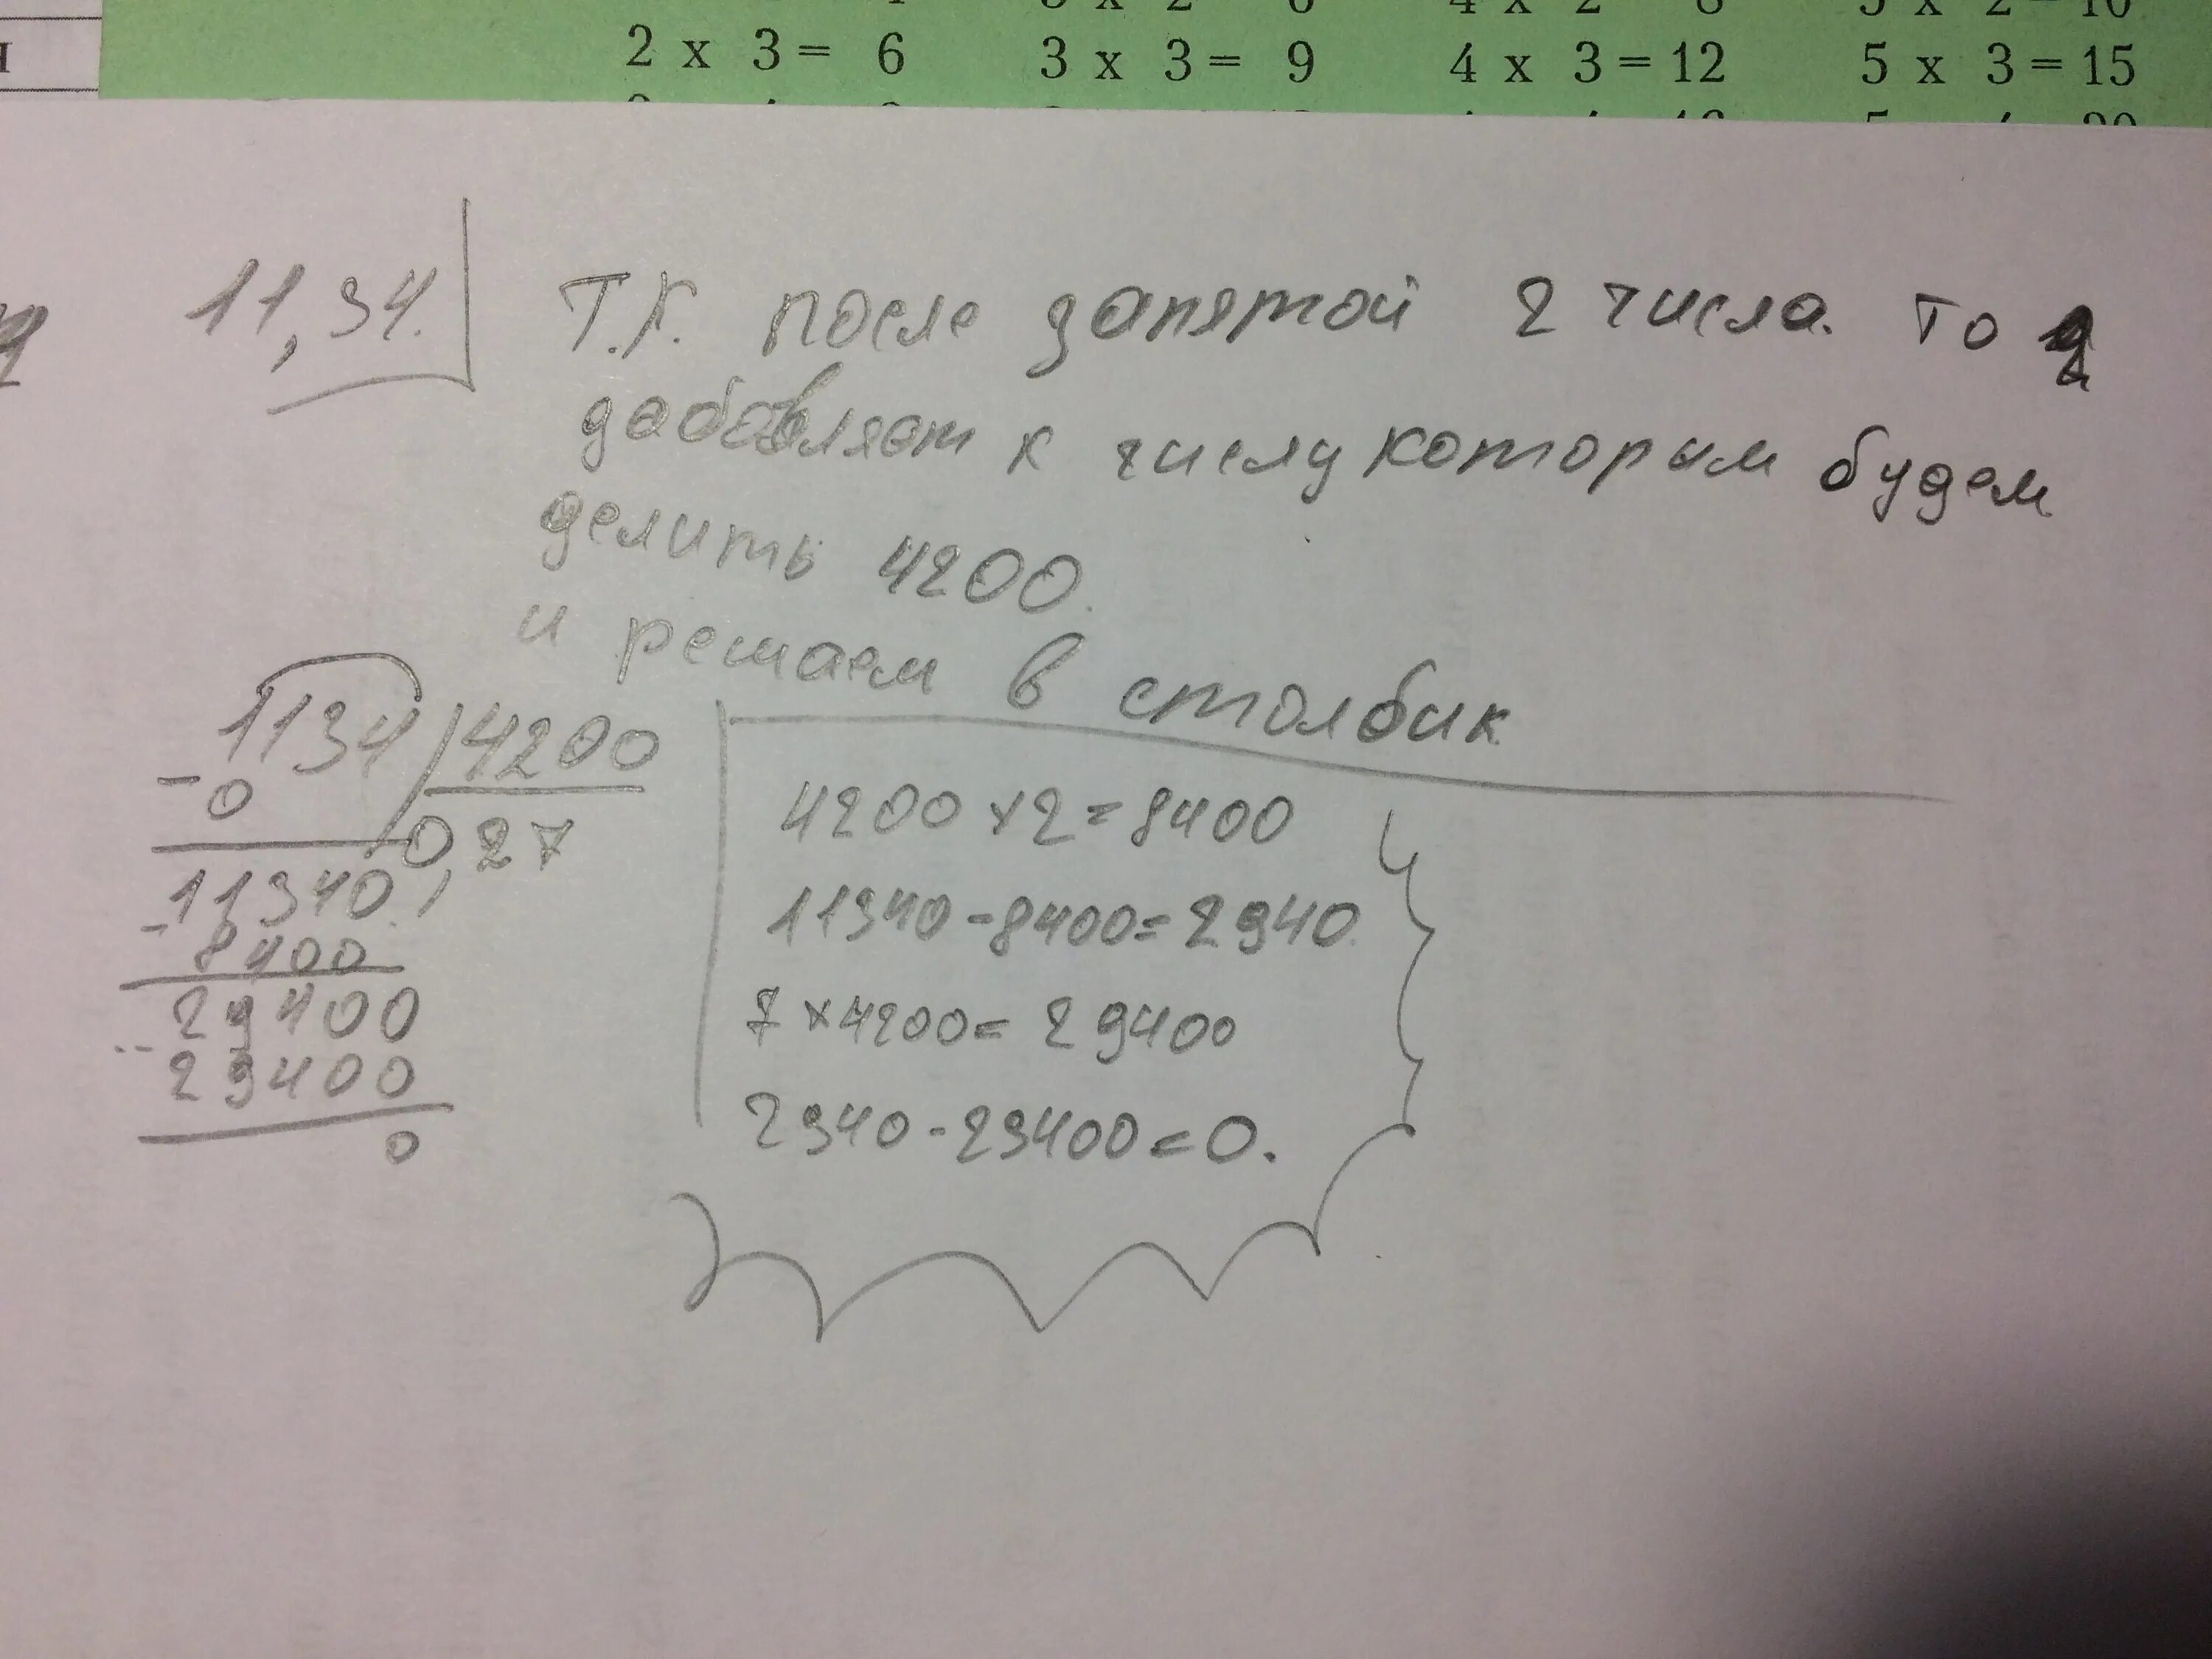 2 x 3 = 6 3 x 3 = 9 4 x 3 = 12 5 x 3 = 15
11,34.
Т.К. после запятой 2 числа. то
добовляем к числу которым будем
делить 4200.
и решаем в столбик
1134 4200
- 0
0,27
11340
- 8400
29400
- 29400
0
4200 x 2 = 8400
11340 - 8400 = 2940.
7 x 4200 = 29400
2940 - 29400 = 0.